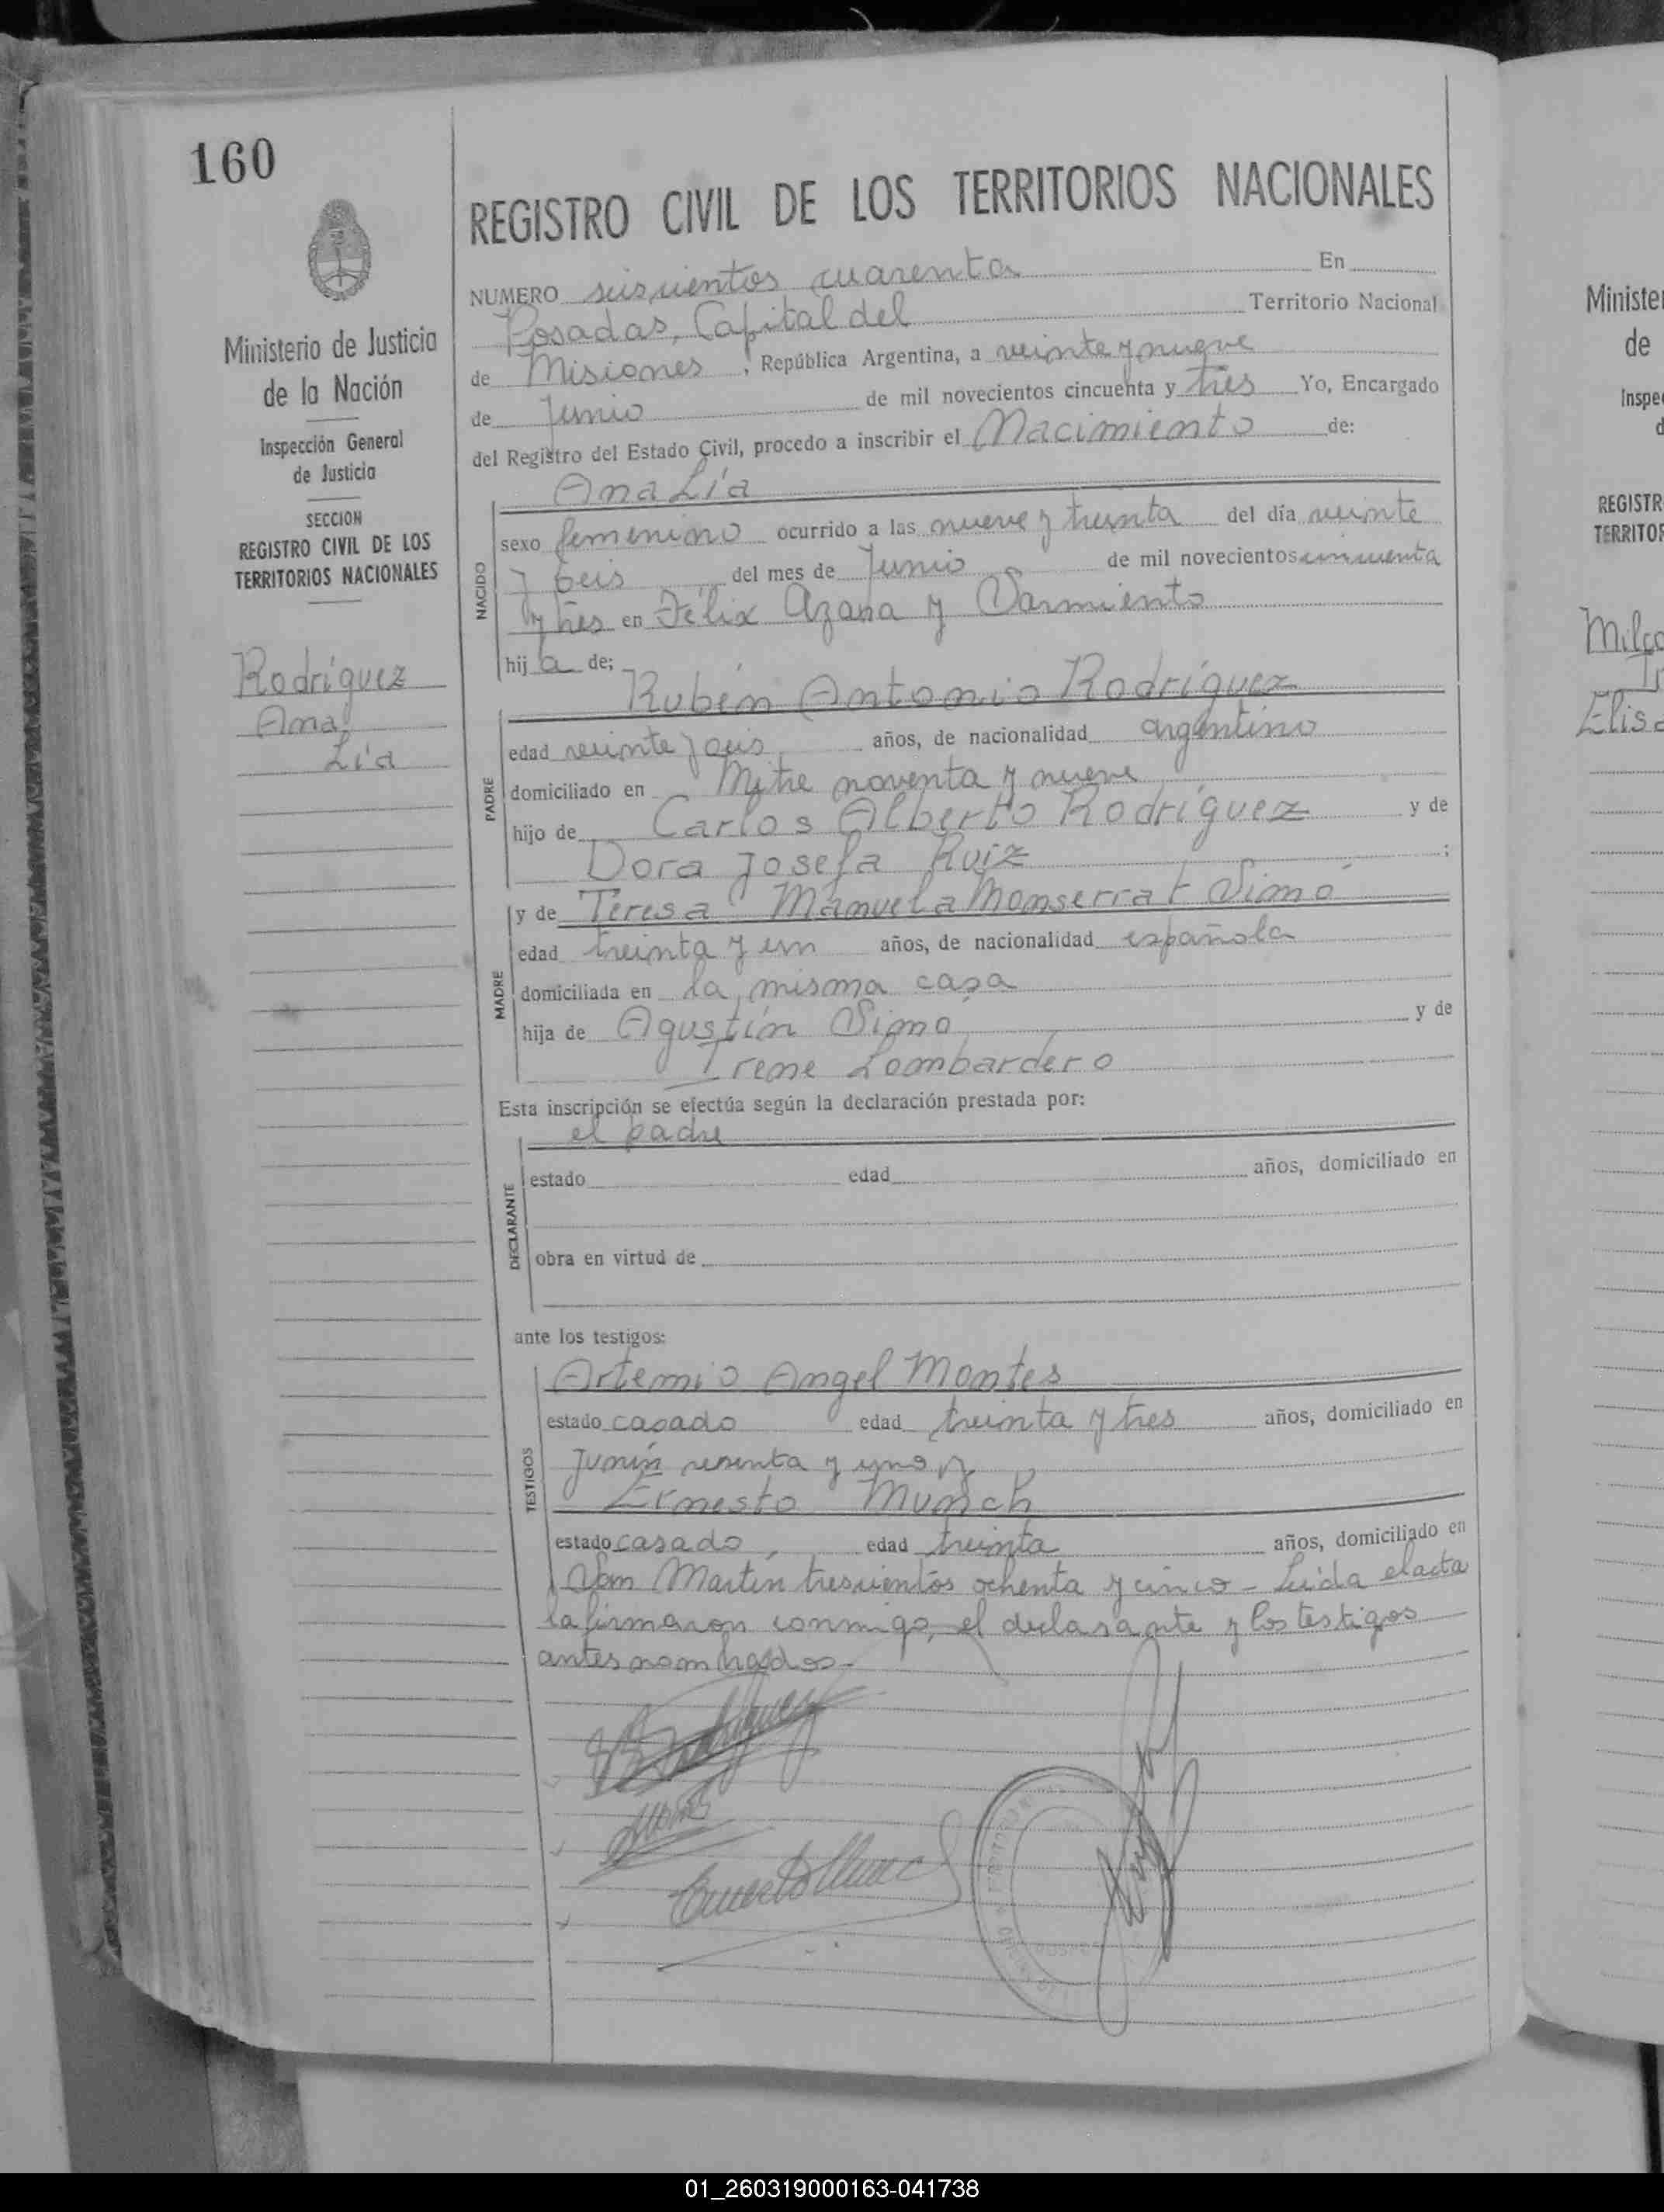 160
REGISTRO CIVIL DE LOS TERRITORIOS NACIONALES
Ministerio de Justicia
de la Nación
Inspección General
de Justicia
SECCION
REGISTRO CIVIL DE LOS
TERRITORIOS NACIONALES
Rodríguez
Ana
Lía
NUMERO seiscientos cuarenta En
Posadas, Capital del Territorio Nacional
de Misiones, República Argentina, a veinte y nueve
de Junio de mil novecientos cincuenta y tres Yo, Encargado
del Registro del Estado Civil, procedo a inscribir el Nacimiento de:
NACIDO
Ana Lía
sexo femenino ocurrido a las nueve y treinta del día veinte
y seis del mes de Junio de mil novecientos cincuenta
y tres en Félix Azara y Sarmiento
hija de;
PADRE
Rubén Antonio Rodríguez
edad veinte y seis años, de nacionalidad argentino
domiciliado en Mitre noventa y nueve
hijo de Carlos Alberto Rodríguez y de
Dora Josefa Ruiz ;
MADRE
y de Teresa Manuela Monserrat Simó
edad treinta y un años, de nacionalidad española
domiciliada en la misma casa
hija de Agustín Simo y de
Irene Lombardero
Esta inscripción se efectúa según la declaración prestada por:
DECLARANTE
el padre
estado edad años, domiciliado en
obra en virtud de
ante los testigos:
TESTIGOS
Artemio Angel Montes
estado casado edad treinta y tres años, domiciliado en
Junín y uno y
Ernesto Munch
estado casado, edad treinta años, domiciliado en
San Martín trescientos ochenta y cinco - Leída el acta
la firmaron conmigo, el declarante y los testigos
antes nombrados-
Ernesto Munch
Ministe
de
Inspe
d
REGISTR
TERRITOR
Elisa
01_260319000163-041738